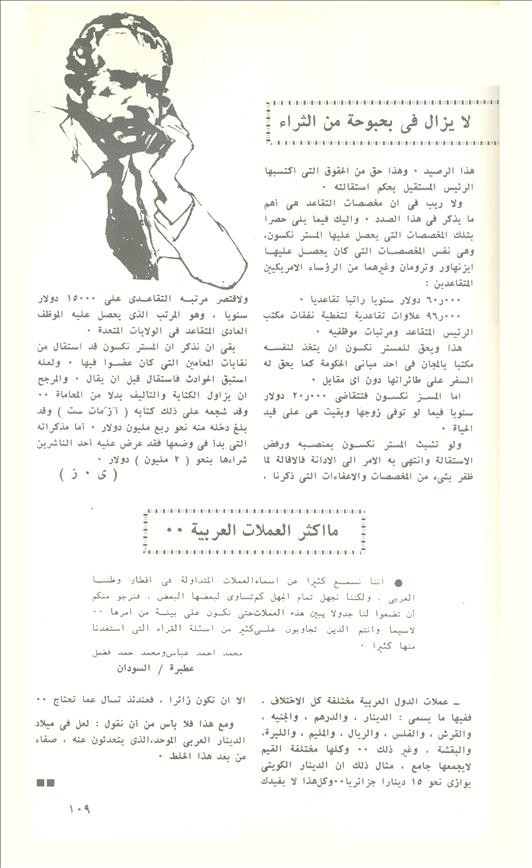 لا يزال فى بحبوحة من الثراء
هذا الرصيد ٠ وهذا حق من الحقوق التى اكتسبها
الرئيس المستقيل بحكم استقالته ٠
ولا ريب فى ان مخصصات التقاعد هى أهم
ما يذكر فى هذا الصدد ٠ واليك فيما يلى حصرا
بتلك المخصصات التى يحصل عليها المستر نكسون،
وهى نفس المخصصات التى كان يحصل عليها
ايزنهاور وترومان وغيرهما من الرؤساء الامريكيين
المتقاعدين :
٦٠ر٠٠٠ دولار سنويا راتبا تقاعديا ٠
٩٦ر٠٠٠ علاوات تقاعدية لتغطية نفقات مكتب
الرئيس المتقاعد ومرتبات موظفيه ٠
هذا ويحق للمستر نكسون ان يتخذ لنفسه
مكتبا بالمجان فى احد مبانى الحكومة كما يحق له
السفر على طائراتها دون اى مقابل ٠
اما المسز نكسون فتتقاضى ٢٠ر٠٠٠ دولار
سنويا فيما لو توفى زوجها وبقيت هى على قيد
الحياة ٠
ولو تشبث المستر نكسون بمنصبه ورفض
الاستقالة وانتهى به الامر الى الادانة فالاقالة لما
ظفر بشىء من المخصصات والاعفاءات التى ذكرنا ،
ولاقتصر مرتبه التقاعدى على ١٥٠٠٠ دولار
سنويا ، وهو المرتب الذى يحصل عليه الموظف
العادى المتقاعد فى الولايات المتحدة ٠
بقى ان نذكر ان المستر نكسون قد استقال من
نقابات المحامين التى كان عضوا فيها ٠ ولعله
استبق الحوادث فاستقال قبل ان يقال ٠ والمرجح
ان يزاول الكتابة والتأليف بدلا من المحاماة ٠٠
وقد شجعه على ذلك كتابه ( أزمات ست ) وقد
بلغ دخله منه نحو ربع مليون دولار ٠ أما مذكراته
التى بدأ فى وضعها فقد عرض عليه أحد الناشرين
شراءها بنحو ( ٢ مليون ) دولار ٠
( ى ٠ ز )
ما اكثر العملات العربية ٠٠
● اننا نسمع كثيرا عن اسماء العملات المتداولة فى اقطار وطننا
العربى ، ولكننا نجهل تمام الجهل كم تساوى لبعضها البعض ، فنرجو منكم
أن تضعوا لنا جدولا يبين هذه العملات حتى نكون على بينة من امرها ٠٠
لاسيما وانتم الذين تجاوبون على كثير من اسئلة القراء التى استفدنا
منها كثيرا ٠
محمد احمد عباس ومحمد حمد فضل
عطبرة / السودان
ـ عملات الدول العربية مختلفة كل الاختلاف ،
ففيها ما يسمى : الدينار ، والدرهم ، والجنيه ،
والقرش ، والفلس ، والريال ، والمليم ، والليرة،
والبقشة ، وغير ذلك ٠٠ وكلها مختلفة القيم
لايجمعها جامع ، مثال ذلك ان الدينار الكويتى
يوازى نحو ١٥ دينارا جزائريا٠٠وكل هذا لا يفيدك
الا ان تكون زائرا ، فعندئذ تسأل عما تحتاج ٠٠
ومع هذا فلا بأس من أن نقول : لعل فى ميلاد
الدينار العربى الموحد،الذى يتحدثون عنه ، صفاء
من بعد هذا الخلط ٠
١٠٩